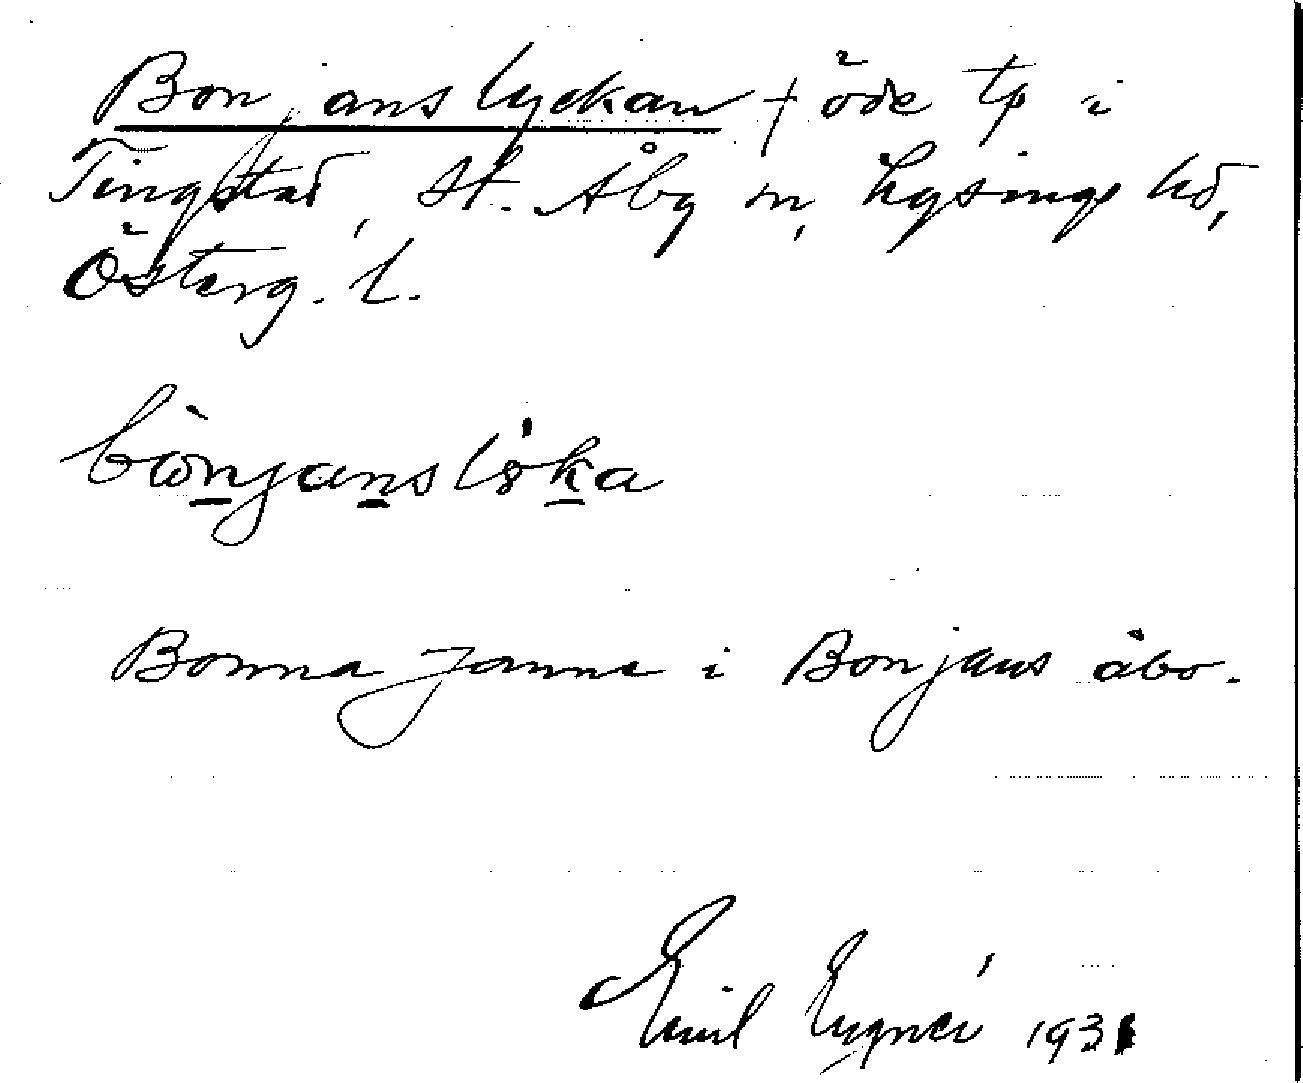 Bonjanslyckan † öde tp i
Tingstad, St. Åby sn, Lysings hd,
Österg. l.
bònjanslöka
Bonna Janne i Bonjans åbo.
Emil 1931